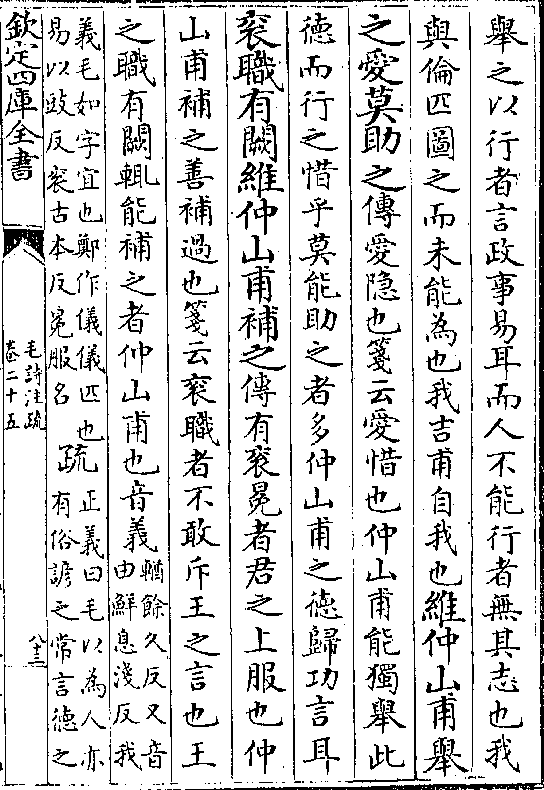 舉之以行者言政事易耳而人不能行者無其志也我
與倫匹圖之而未能為也我吉甫自我也維仲山甫舉
之愛莫助之傳愛隠也箋云愛惜也仲山甫能獨舉此
徳而行之惜乎莫能助之者多仲山甫之徳歸功言耳
袞職有闕維仲山甫補之傳有袞冕者君之上服也仲
山甫補之善補過也箋云袞職者不敢斥王之言也王
之職有闕輒能補之者仲山甫也音義輶餘久反又音
由鮮息淺反我
義毛如字宜也鄭作儀儀匹也
易以豉反袞古本反冕服名
疏正義曰毛以為人亦
有俗諺之常言徳之
欽定四庫全書
毛詩注疏
卷二十五
八十三